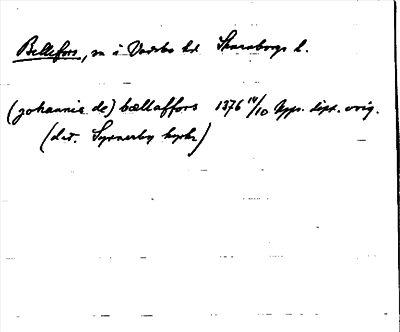 Bellefors, sn i Vadsbo hd Skaraborgs l.
(johannis de) bællaffors 1376 14/10 Upps. dipl. orig.
(dat. Tyrnerby kyrka)